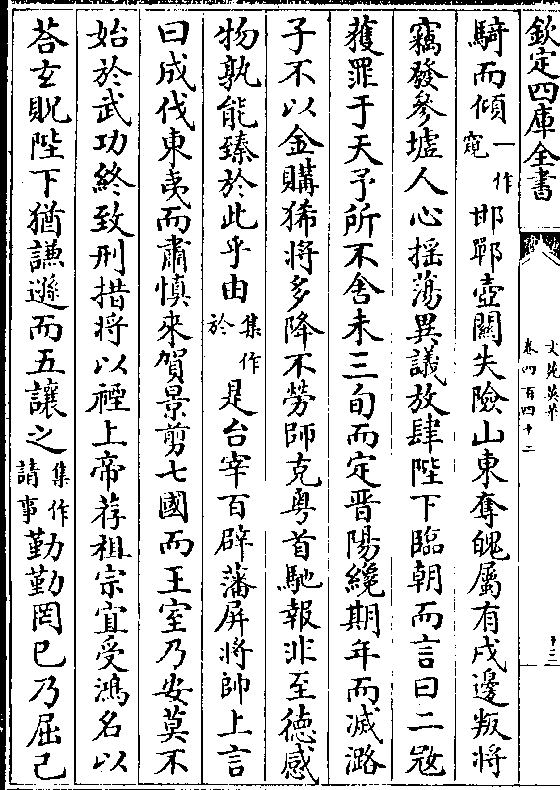 欽定四庫全書
文苑英華
卷四百四十二
十三
騎而傾一作窺邯鄲壺關失險山東奪魄屬有戍邊叛將
竊發參墟人心搖蕩異議放肆陛下臨朝而言曰二㓂
獲罪于天予所不舍未三旬而定晋陽纔期年而滅潞
子不以金購狶將多降不勞師克粤首馳報非至徳感
物孰能臻於此乎由集作於是台宰百辟藩屏將帥上言
曰成伐東夷而肅慎來賀景剪七國而王室乃安莫不
始於武功終致刑措將以禋上帝荐祖宗宜受鴻名以
荅玄貺陛下猶謙遜而五讓之集作請事勤勤罔已乃屈己